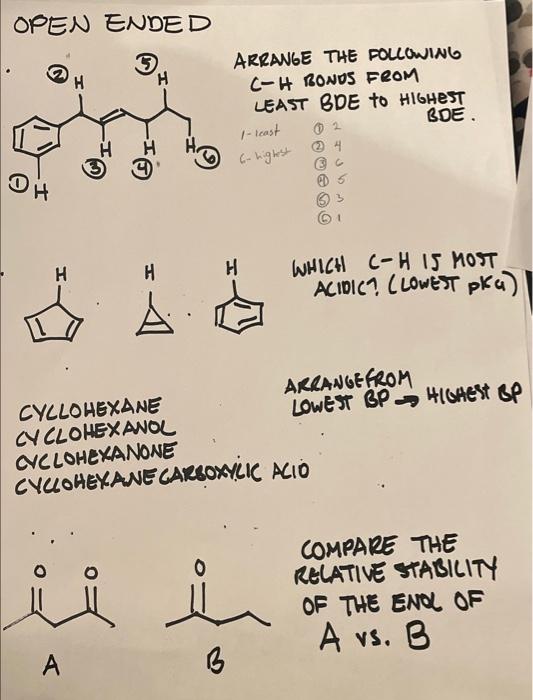 OPEN ENDED
② H
⑤ H
H ③
H ④
H ⑥
① H
ARRANGE THE FOLLOWING
C-H BONDS FROM
LEAST BDE to HIGHEST
BDE.
1-least
6-highest
① 2
② 4
③ 6
④ 5
⑤ 3
⑥ 1
H H H
WHICH C-H IS MOST
ACIDIC? (LOWEST pKa)
ARRANGE FROM
LOWEST BP → HIGHEST BP
CYCLOHEXANE
CYCLOHEXANOL
CYCLOHEXANONE
CYCLOHEXANE CARBOXYLIC ACID
O O O
A B
COMPARE THE
RELATIVE STABILITY
OF THE ENOL OF
A vs. B